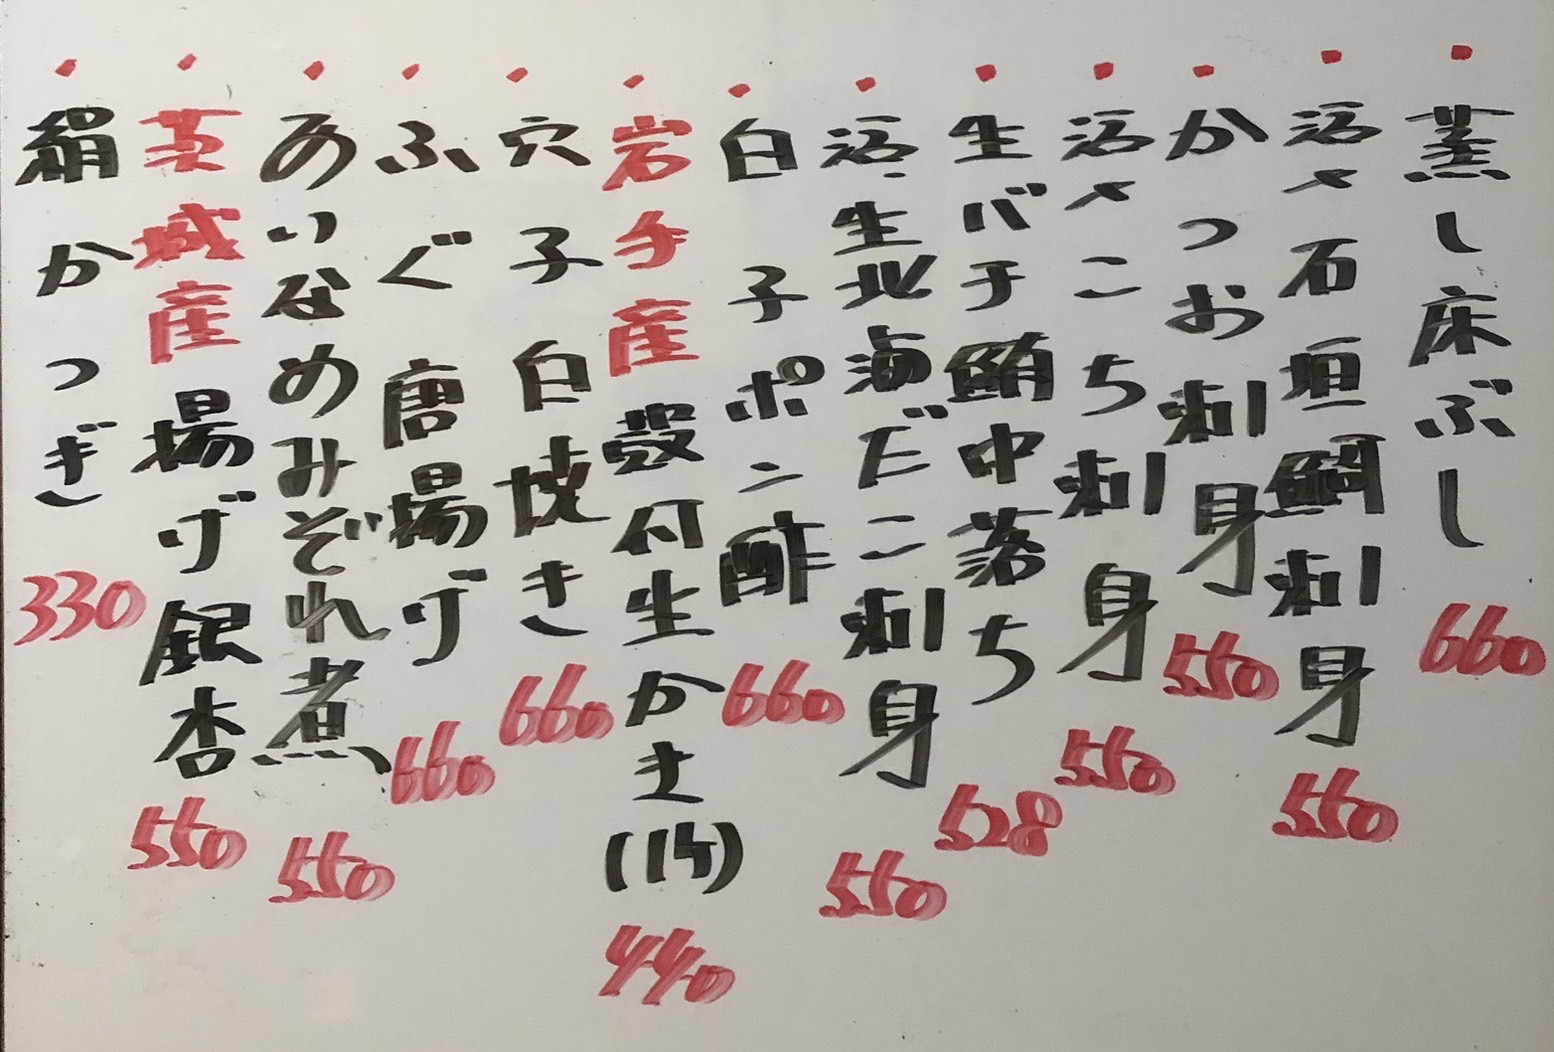 ・蒸し床ぶし 660
・活〆石垣鯛刺身 550
・かつお刺身 550
・活〆こち刺身 550
・生バチ鮪中落ち 528
・活生北海だこ刺身 550
・白子ポン酢 660
・岩手産殻付生かき(1ケ) 440
・穴子白焼き 660
・ふぐ唐揚げ 660
・あいなめみぞれ煮 550
・茨城産揚げ銀杏 550
・絹かつぎ 330